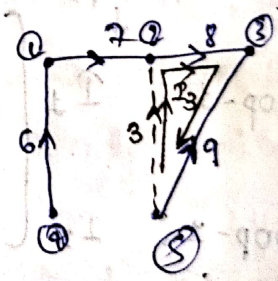 ① 7 ② 8 ③
I₃
6 3 9
④ ⑤